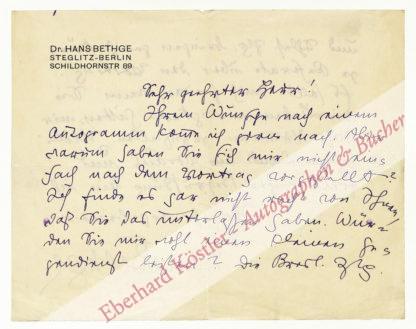 Dr. HANS BETHGE
STEGLITZ-BERLIN
SCHILDHORNSTR 89
Sehr geehrter Herr
Ihrem Wunsche nach einem
Autogramm komme ich gern nach. Aber
warum haben Sie sich mir nicht ein-
fach nach dem Vortrag vorgestellt?
Ich finde es gar nicht nett von Ihnen,
daß Sie das unterlassen haben. Wür-
den Sie mir wohl einen kleinen Ge-
gendienst leisten? Die Bresl. Ztg.
Eberhard Köstler Autographen & Bücher